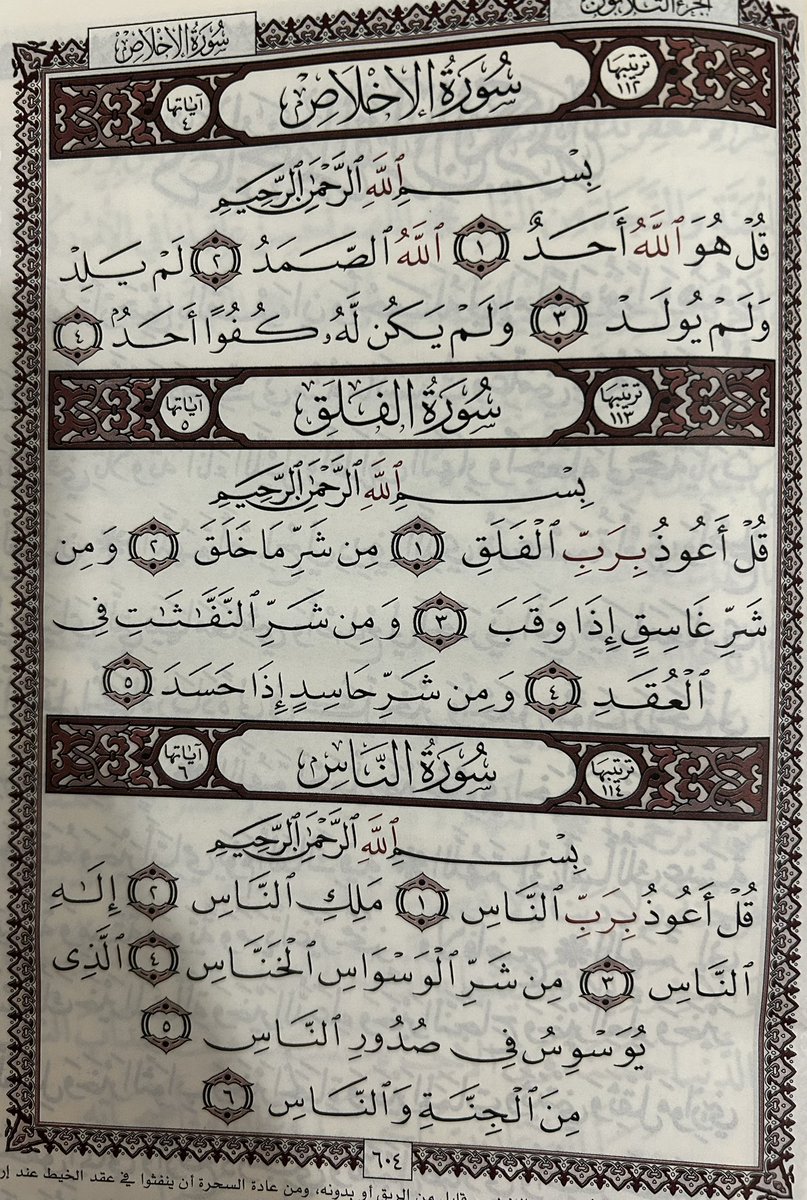 الجزء الثلاثون
سُورَةُ الإِخْلَاصِ
ترتيبها ١١٢ سُورَةُ الإِخْلَاصِ آياتها ٤
بِسْمِ ٱللَّهِ ٱلرَّحْمَٰنِ ٱلرَّحِيمِ
قُلْ هُوَ ٱللَّهُ أَحَدٌ ١ ٱللَّهُ ٱلصَّمَدُ ٢ لَمْ يَلِدْ
وَلَمْ يُولَدْ ٣ وَلَمْ يَكُن لَّهُۥ كُفُوًا أَحَدٌۢ ٤
ترتيبها ١١٣ سُورَةُ الفَلَقِ آياتها ٥
بِسْمِ ٱللَّهِ ٱلرَّحْمَٰنِ ٱلرَّحِيمِ
قُلْ أَعُوذُ بِرَبِّ ٱلْفَلَقِ ١ مِن شَرِّ مَا خَلَقَ ٢ وَمِن
شَرِّ غَاسِقٍ إِذَا وَقَبَ ٣ وَمِن شَرِّ ٱلنَّفَّٰثَٰتِ فِى
ٱلْعُقَدِ ٤ وَمِن شَرِّ حَاسِدٍ إِذَا حَسَدَ ٥
ترتيبها ١١٤ سُورَةُ النَّاسِ آياتها ٦
بِسْمِ ٱللَّهِ ٱلرَّحْمَٰنِ ٱلرَّحِيمِ
قُلْ أَعُوذُ بِرَبِّ ٱلنَّاسِ ١ مَلِكِ ٱلنَّاسِ ٢ إِلَٰهِ
ٱلنَّاسِ ٣ مِن شَرِّ ٱلْوَسْوَاسِ ٱلْخَنَّاسِ ٤ ٱلَّذِى
يُوَسْوِسُ فِى صُدُورِ ٱلنَّاسِ ٥
مِنَ ٱلْجِنَّةِ وَٱلنَّاسِ ٦
٦٠٤
من الريق أو بدونه، ومن عادة السحرة أن ينفثوا في عقد الخيط عند